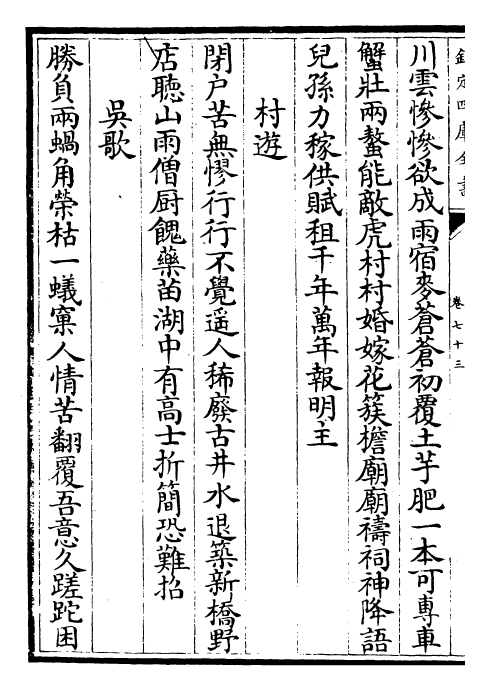 欽定四庫全書
卷七十三
川雲慘慘欲成雨宿麥蒼蒼初覆土芋肥一本可專車
蟹壯兩螯能敵虎村村婚嫁花簇檐廟廟禱祠神降語
兒孫力稼供賦租千年萬年報明主
村遊
閉户苦無憀行行不覺遥人稀廢古井水退築新橋野
店聽山雨僧厨餽藥苗湖中有高士折簡恐難招
吳歌
勝負兩蝸角榮枯一蟻窠人情苦翻覆吾意久蹉跎困